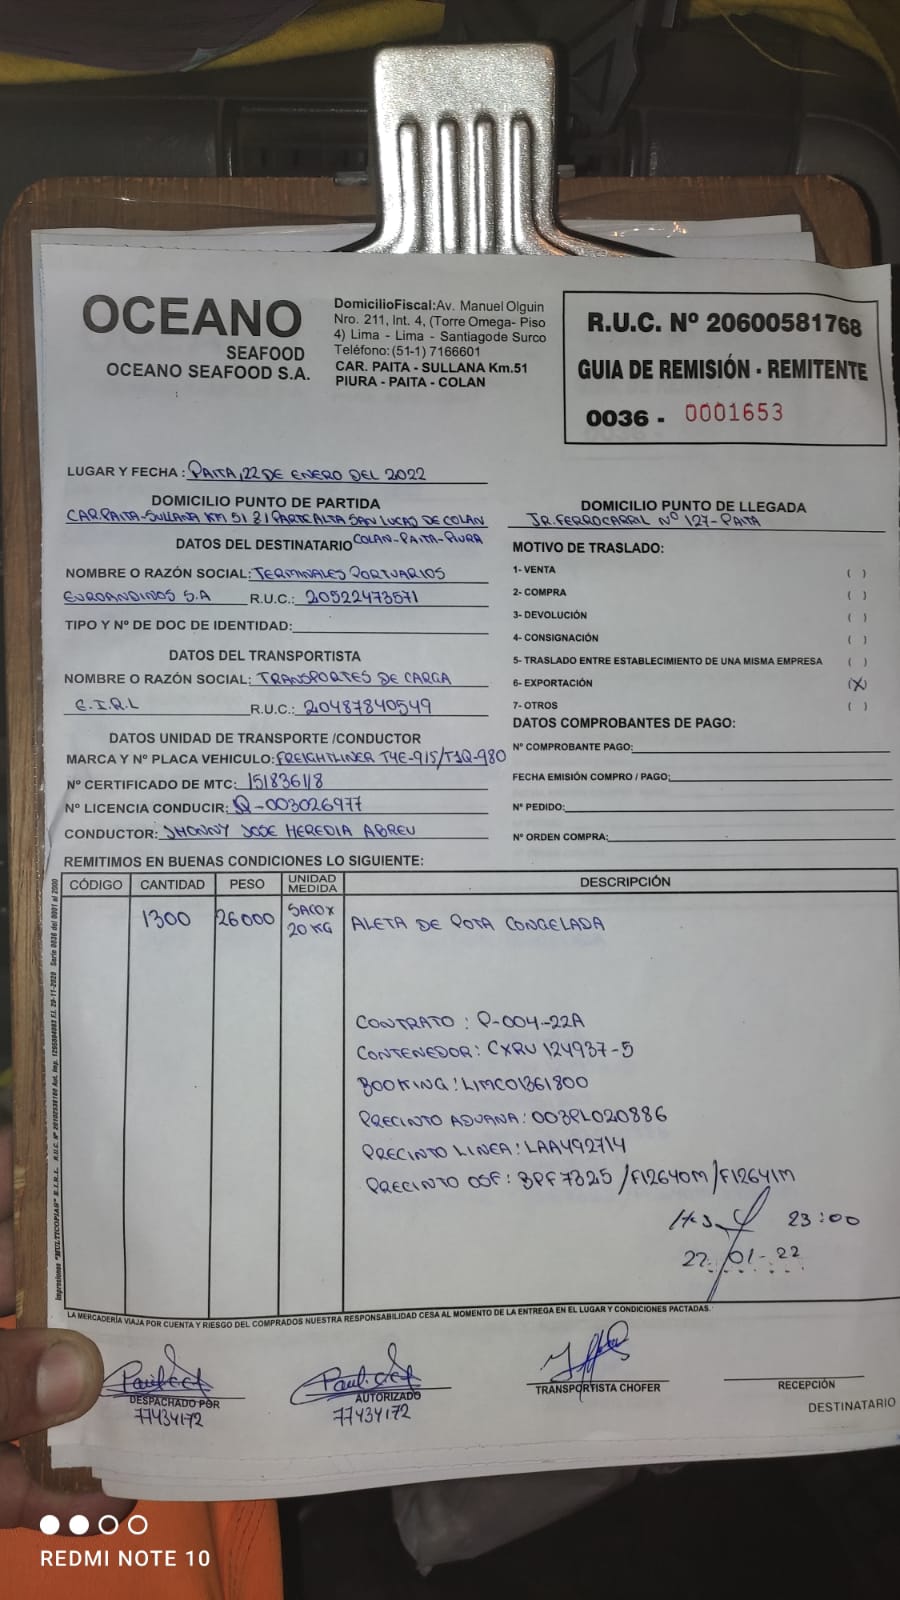 OCEANO
SEAFOOD
OCEANO SEAFOOD S.A.
DomicilioFiscal:Av. Manuel Olguin
Nro. 211, Int. 4, (Torre Omega- Piso
4) Lima - Lima - Santiagode Surco
Teléfono:(51-1) 7166601
CAR. PAITA - SULLANA Km.51
PIURA - PAITA - COLAN
R.U.C. Nº 20600581768
GUIA DE REMISIÓN - REMITENTE
0036 - 0001653
LUGAR Y FECHA : PAITA, 22 DE ENERO DEL 2022
DOMICILIO PUNTO DE PARTIDA
CAR.PAITA-SULLANA KM 51 Z1 PARTE ALTA SAN LUCAS DE COLAN
COLAN-PAITA-PIURA
DOMICILIO PUNTO DE LLEGADA
JR.FERROCARRIL Nº 127- PAITA
DATOS DEL DESTINATARIO
NOMBRE O RAZÓN SOCIAL: TERMINALES PORTUARIOS
EUROANDINOS S.A R.U.C.: 20522473571
TIPO Y Nº DE DOC DE IDENTIDAD:
DATOS DEL TRANSPORTISTA
NOMBRE O RAZÓN SOCIAL: TRANSPORTES DE CARGA
E.I.R.L R.U.C.: 20487840549
DATOS UNIDAD DE TRANSPORTE /CONDUCTOR
MARCA Y Nº PLACA VEHICULO: FREIGHTLINER T4E-915/T3Q-980
Nº CERTIFICADO DE MTC: 15183618
Nº LICENCIA CONDUCIR: Q-003026977
CONDUCTOR: JHONNY JOSE HEREDIA ABREU
MOTIVO DE TRASLADO:
1- VENTA ( )
2- COMPRA ( )
3- DEVOLUCIÓN ( )
4- CONSIGNACIÓN ( )
5- TRASLADO ENTRE ESTABLECIMIENTO DE UNA MISMA EMPRESA ( )
6- EXPORTACIÓN (X)
7- OTROS ( )
DATOS COMPROBANTES DE PAGO:
Nº COMPROBANTE PAGO:
FECHA EMISIÓN COMPRO / PAGO:
Nº PEDIDO:
Nº ORDEN COMPRA:
REMITIMOS EN BUENAS CONDICIONES LO SIGUIENTE:
CÓDIGO CANTIDAD PESO UNIDAD MEDIDA DESCRIPCIÓN
1300 26000 SACO X 20 KG ALETA DE POTA CONGELADA
CONTRATO : P-004-22A
CONTENEDOR: CXRU 124937-5
BOOKING: LIMC01361800
PRECINTO ADUANA: 003PL020886
PRECINTO LINEA: LAA492714
PRECINTO OSF: BPF7325 /F12640M/F12641M
23:00
22/01-22
LA MERCADERÍA VIAJA POR CUENTA Y RIESGO DEL COMPRADOS NUESTRA RESPONSABILIDAD CESA AL MOMENTO DE LA ENTREGA EN EL LUGAR Y CONDICIONES PACTADAS.
DESPACHADO POR
77434172
AUTORIZADO
77434172
TRANSPORTISTA CHOFER
RECEPCIÓN
DESTINATARIO
REDMI NOTE 10